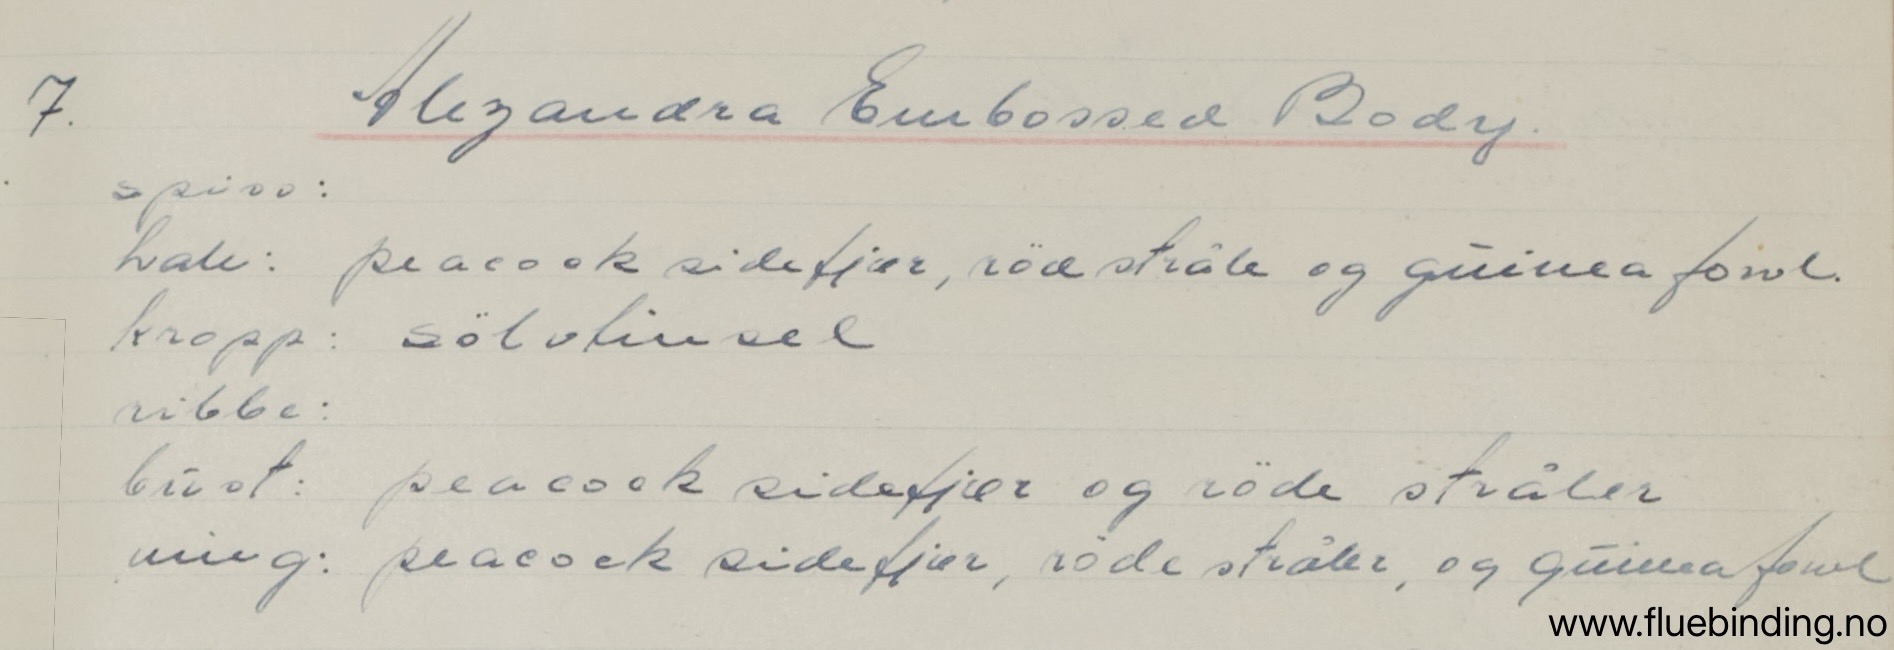 7. Alexandra Embossed Body.
spiss:
hale: peacock sidefjær, röd stråle og guinea fowl.
kropp: sölvtinsel
ribbe:
bust: peacock sidefjær og röde stråler
ving: peacock sidefjær, röde stråler, og guinea fowl
www.fluebinding.no